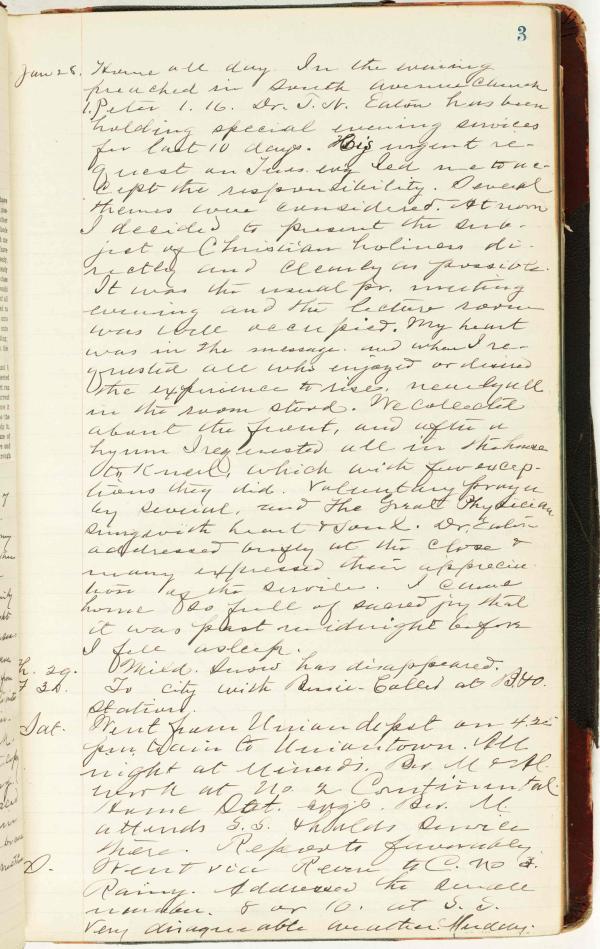 3
Jan 28. Home all day. In the evening
preached in South Avenue Church
1. Peter 1. 16. Dr. T. N. Eaton has been
holding special evening services
for last 10 days. His urgent re-
quest on Tues. evg led me to ac-
cept the responsibility. Several
themes were considered. At noon
I decided to present the sub-
ject of Christian holiness di-
rectly and clearly as possible.
It was the usual pr. meeting
evening and the lecture room
was well occupied. My heart
was in the message and when I re-
quested all who enjoyed or desired
the experience to rise, nearly all
in the room stood. We collected
about the front, and after a
hymn I requested all in the house
to kneel, which with few excep-
tions they did. Voluntary prayer
by several, and The Great Physician
sung with heart & soul. Dr. Eaton
addressed briefly at the close &
many expressed their apprecia-
tion of the service. I came
home so full of sacred joy that
it was past midnight before
I fell asleep.
Th. 29. Mild. Snow has disappeared.
To city with Bessie - Called at B&O.
Station.
Sat. Went from Union depot on 4.25
p.m. train to Uniontown. All
night at Minerd's. Bro. M &
work at No. 2 Continental
Home
attends S.S. & holds service
there. Reports favorably.
Went via to C. No 3.
Rainy. Addressed the small
number. 8 or 10. at S. S.
Very disagreeable weather